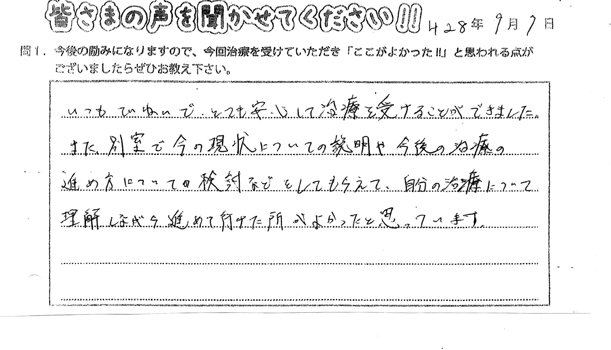 皆さまの声を聞かせてください!! H28年 9月 7日
問1. 今後の励みになりますので、今回治療を受けていただき「ここがよかった!!」と思われる点が
ございましたらぜひお教え下さい。
いつもていねいで、とても安心して治療を受けることができました。
また、別室で今の現状についての説明や今後の治療の
進め方についての検討などとしてもらえて、自分の治療について
理解しながら進めて行けた所がよかったと思っています。